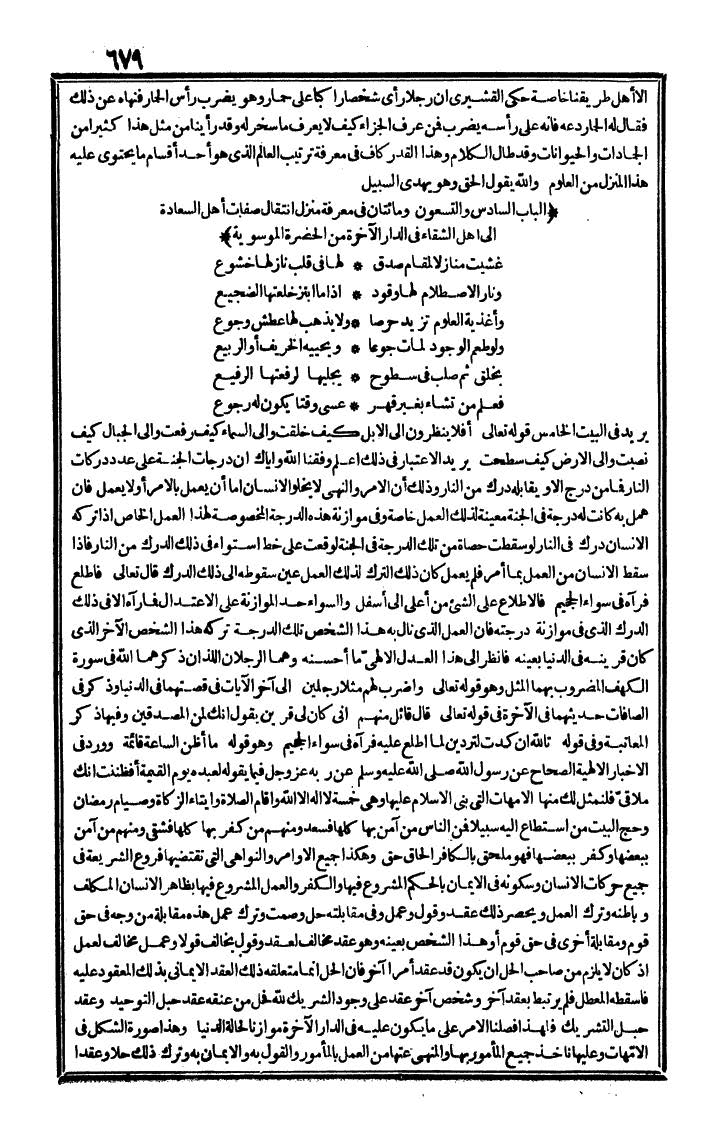 ٦٧٩
الا أهل طريقنا خاصة حكى القشيرى ان رجلا رأى شخصا راكبا على حمار وهو يضرب رأس الحمار فنهاه عن ذلك
فقال له الحمار دعه فانه على رأسه يضرب فمن عرف الجزاء كيف لا يعرف ما سخر له وقد رأينا من مثل هذا كثيرا من
الجمادات والحيوانات وقد طال الكلام وهذا القدر كاف فى معرفة ترتيب العالم الذى هو أحد أقسام ما يحتوى عليه
هذا المنزل من العلوم والله يقول الحق وهو يهدى السبيل
﴿الباب السادس والتسعون ومائتان فى معرفة منزل انتقال صفات أهل السعادة
الى اهل الشقاء فى الدار الآخرة من الحضرة الموسوية﴾
غشيت منازلا لمقام صدق * لها فى قلب نازلها خشوع
ونار الاصطلام لها وقود * اذا ما ابتز خلعتها الضجيع
وأغذية العلوم تزيد حرصا * ولا يذهب لها عطش وجوع
ولو طعم الوجود لمات جوعا * ويحييه الخريف أو الربيع
بخلق ثم صلب فى سطوح * يجليها لرفعتها الرفيع
فعلم من تشاء بغير قهر * عسى وقتا يكون له رجوع
يريد فى البيت الخامس قوله تعالى أفلا ينظرون الى الابل كيف خلقت والى السماء كيف رفعت والى الجبال كيف
نصبت والى الارض كيف سطحت يريد الاعتبار فى ذلك اعلم وفقنا الله واياك ان درجات الجنة على عدد دركات
النار فما من درج الا ويقابله درك من النار وذلك أن الامر والنهى لا يخلو الانسان اما أن يعمل بالامر أو لا يعمل فان
عمل به كانت له درجة فى الجنة معينة لذلك العمل خاصة وفى موازنة هذه الدرجة المخصوصة لهذا العمل الخاص اذا تركه
الانسان درك فى النار لو سقطت حصاة من تلك الدرجة فى الجنة لوقعت على خط استواء فى ذلك الدرك من النار فاذا
سقط الانسان من العمل بما أمر فلم يعمل كان ذلك الترك لذلك العمل عين سقوطه الى ذلك الدرك قال تعالى فاطلع
فرآه فى سواء الجحيم فالاطلاع على الشئ من أعلى الى أسفل والسواء حد الموازنة على الاعتدال فما رآه الا فى ذلك
الدرك الذى فى موازنة درجته فان العمل الذى نال به هذا الشخص تلك الدرجة تركه هذا الشخص الآخر الذى
كان قرينه فى الدنيا بعينه فانظر الى هذا العدل الالهى ما أحسنه وهما الرجلان اللذان ذكرهما الله فى سورة
الكهف المضروب بهما المثل وهو قوله تعالى واضرب لهم مثلا رجلين الى آخر الآيات فى قصتهما فى الدنيا وذكر فى
الصافات حديثهما فى الآخرة فى قوله تعالى قال قائل منهم انى كان لى قرين يقول انك لمن المصدقين وفيها ذكر
المعاتبة وفى قوله تالله ان كدت لتردين لما اطلع عليه فرآه فى سواء الجحيم وهو قوله ما أظن الساعة قائمة وورد فى
الاخبار الالهية الصحاح عن رسول الله صلى الله عليه وسلم عن ربه عز وجل فيما يقوله لعبده يوم القيمة أفظننت انك
ملاقىّ فلنمثل لك منها الامهات التى بنى الاسلام عليها وهى خمسة لا اله الا الله واقام الصلاة وايتاء الزكاة وصيام رمضان
وحج البيت من استطاع اليه سبيلا فمن الناس من آمن بها كلها فسعد ومنهم من كفر بها كلها فشقى ومنهم من آمن
ببعضها وكفر ببعضها فهو ملحق بالكافر الحاق حق وهكذا جميع الاوامر والنواهى التى تقتضيها فروع الشريعة فى
جميع حركات الانسان وسكونه فى الايمان بالحكم المشروع فيها والكفر والعمل المشروع فيها بظاهر الانسان المكلف
وباطنه وترك العمل ويحصر ذلك عقد وقول وعمل وفى مقابلته حل وصمت وترك عمل هذه مقابلة من وجه فى حق
قوم ومقابلة أخرى فى حق قوم أو هذا الشخص بعينه وهو عقد مخالف لعقد وقول يخالف قولا وعمل مخالف لعمل
اذ كان لا يلزم من صاحب الحل ان يكون قد عقد أمرا آخر فان الحل انما متعلقه ذلك العقد الايمانى بذلك المعقود عليه
فاسقطه المعطل فلم يرتبط بعقد آخر وشخص آخر عقد على وجود الشريك لله فحل من عنقه عقد حبل التوحيد وعقد
حبل التشريك فلهذا فصلنا الامر على ما يكون عليه فى الدار الآخرة موازنا لحالة الدنيا وهذا صورة الشكل فى
الامّهات وعليها ناخذ جميع المأمور بها والمنهى عنها من العمل بالمأمور والقول به والايمان به وترك ذلك حلا وعقدا